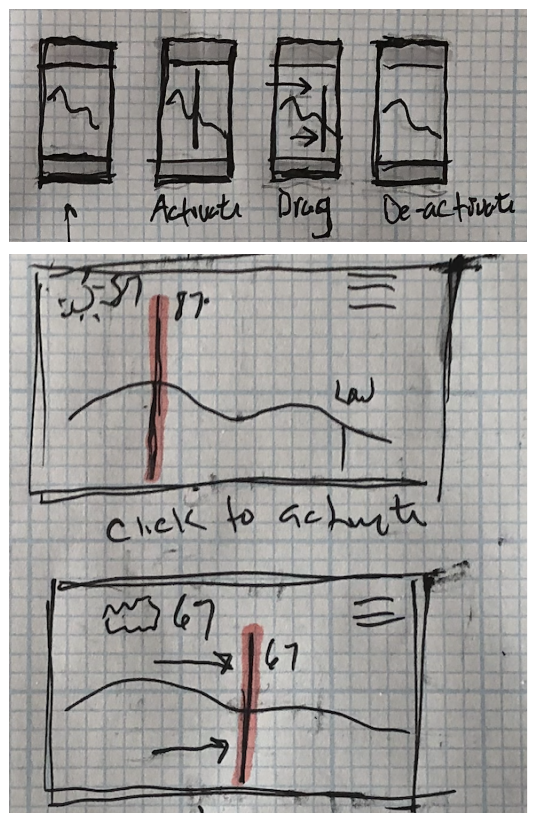 Activate Drag De-activate
87 87°
Low
click to activate
67
67